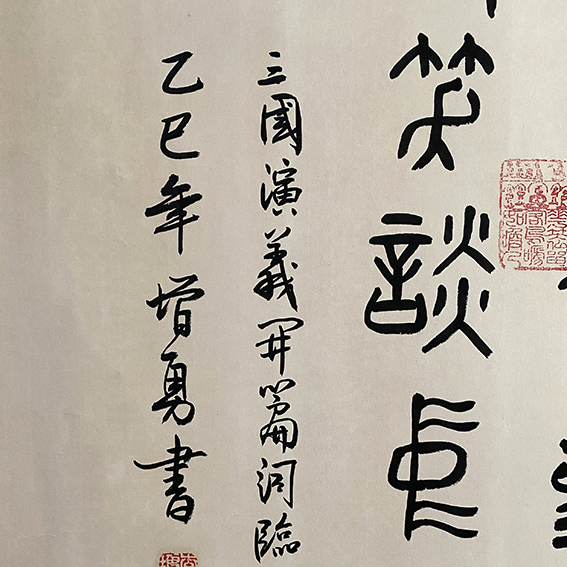 笑談中
三國演義開篇詞臨
乙巳年增勇書